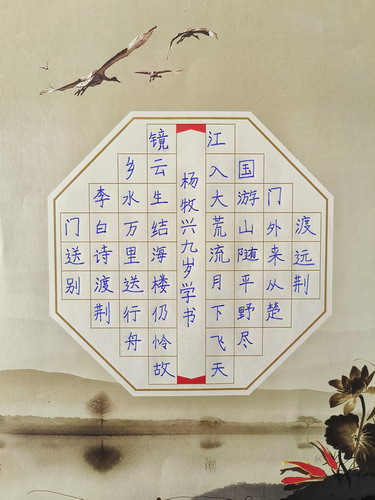 渡远荆
门外来从楚
国游山随平野尽
江入大荒流月下飞天
杨牧兴九岁学书
镜云生结海楼仍怜故
乡水万里送行舟
李白诗渡荆
门送别